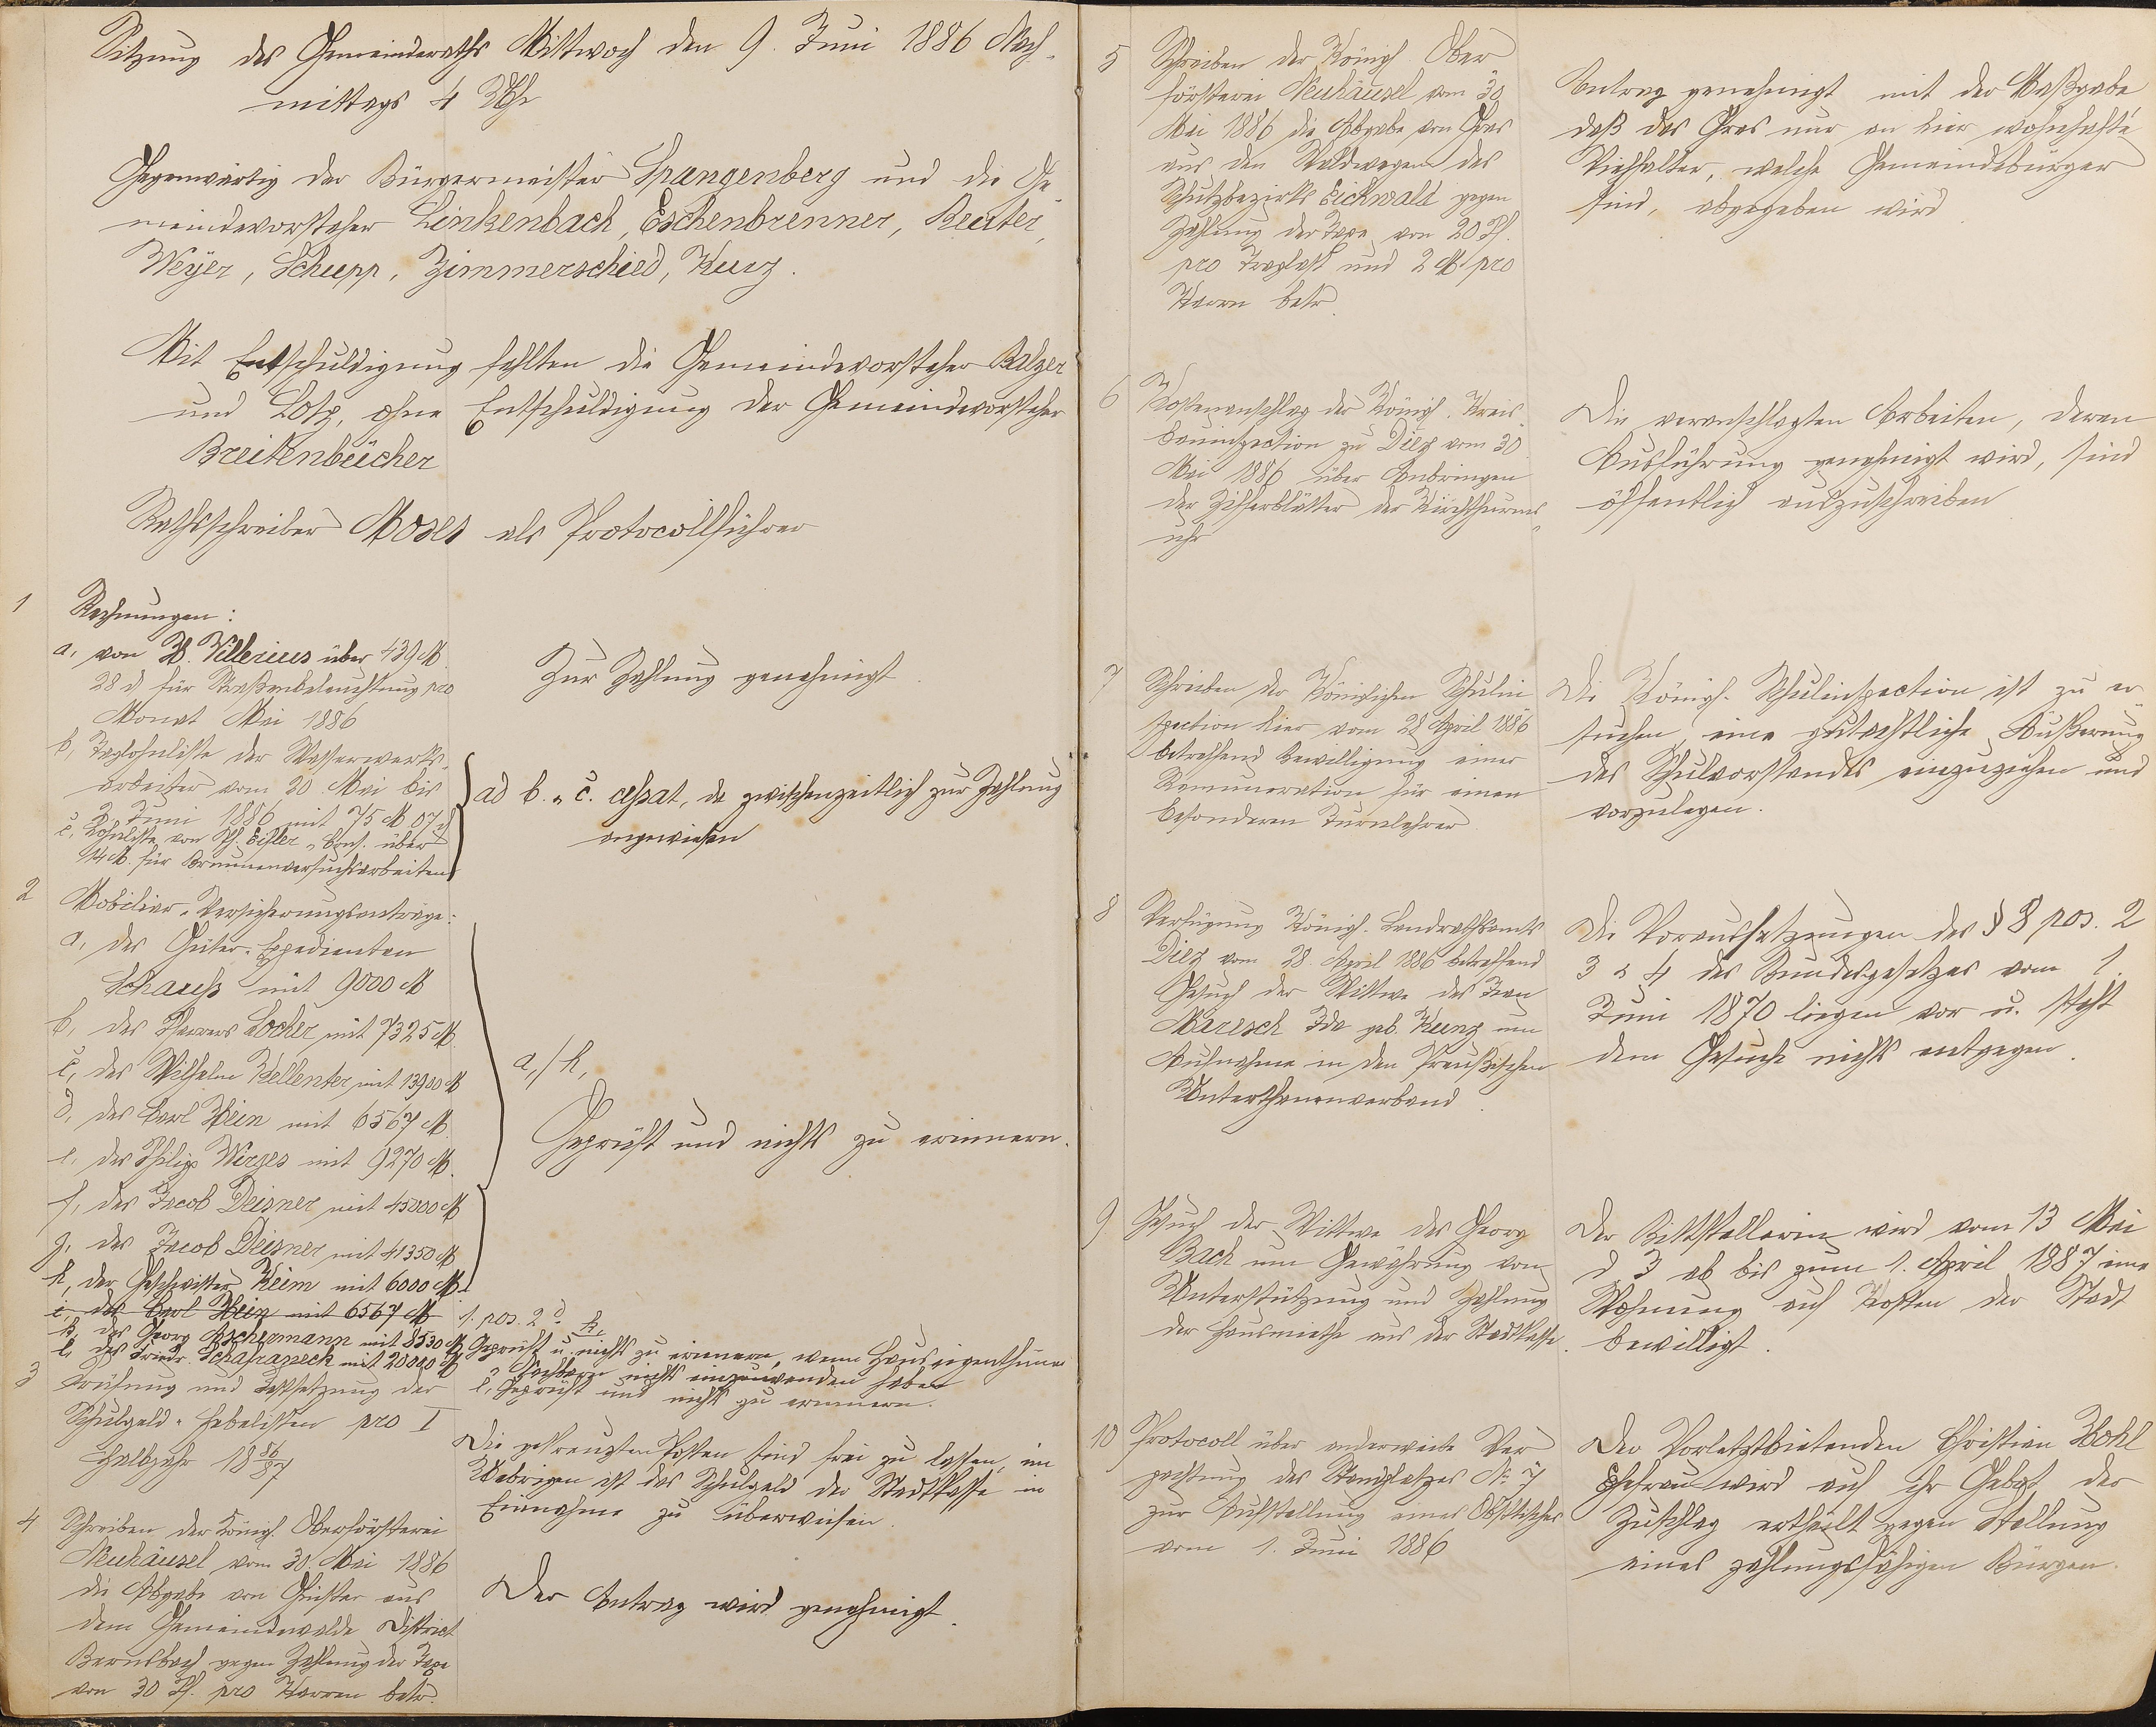 Sitzung des Gemeinderaths Mittwoch den 9. Juni 1886 Nach-
mittags 4 Uhr
Gegenwärtig der Bürgermeister Spangenberg und die Ge-
meindevorsteher Linkenbach, Eschenbrenner, Reuter,
Weyer, Schupp, Zimmerschied, Kurz.
Mit Entschuldigung fehlten die Gemeindevorsteher Balzer
und Lotz, ohne Entschuldigung der Gemeindevorsteher
Breitenbücher
Rathsschreiber Moses als Protocollführer
1 Rechnungen:
a, von W. Villerius über 439 M
28 d für Straßenbeleuchtung pro
Monat Mai 1886
Zur Zahlung genehmigt.
b, Taglohnliste der Wasserwerks-
arbeiter vom 20. Mai bis
2. Juni 1886 mit 75 M 07 d
c, Lohnliste von Ph. Eisler u. Cons. über
14 M. für Brunnenversuchsarbeiten
ad b. u. c. cessat, da zwischenzeitlich zur Zahlung
angewiesen
2 Mobiliar-Versicherungsanträge:
a, des Güter-Expedienten
Schauss mit 9000 M
b, des Pfarrers Locher mit 7325 M.
c, des Wilhelm Kellenter mit 13900 M
d, des Carl Hein mit 6567 M.
e, des Philipp Wirges mit 9270 M.
f, des Jacob Deisner mit 45000 M
g, des Jacob Deisner mit 41350 M
h, der Geschwister Keim mit 6000 M.
a,/h,
Geprüft und nichts zu erinnern.
i, des Carl Hein mit 6567 M i. pos. 2 d
k, des Georg Aschermann mit 8530 M
l, des Friedr. Schafraneck mit 20000 M
k, Geprüft u. nichts zu erinnern, wenn Hauseigenthümer
u. Nachbarn nichts einzuwenden haben
l, Geprüft und nichts zu erinnern.
3 Prüfung und Festsetzung der
Schulgeld-Hebelisten pro I
Halbjahr 18 86/87
Die gekreuzten Posten sind frei zu lassen, im
Uebrigen ist das Schulgeld der Stadtkasse in
Einnahme zu überweisen.
4 Schreiben der Königl. Oberförsterei
Neuhäusel vom 30. Mai 1886
die Abgabe von Ginster aus
dem Gemeindewalde District
Bernsbach gegen Zahlung der Taxe
von 30 Pf. pro Karren betr.
Der Antrag wird genehmigt.
5 Schreiben der Königl. Ober
försterei Neuhäusel vom 30
Mai 1886 die Abgabe von Gras
aus den Waldwegen des
Schutzbezirks Eickwald gegen
Zahlung der Taxe von 20 Pf.
pro Traglast und 2 M pro
Karrn betr.
Antrag genehmigt mit der Maßgabe
daß das Gras nur an hier wohnhafte
Viehhalter, welche Gemeindebürger
sind, abgegeben wird
6 Kostenanschlag der Königl. Kreis-
bauinspection zu Diez vom 30
Mai 1886 über Anbringen
der Zifferblätter der Kirchthurms-
uhr
Die veranschlagten Arbeiten, deren
Ausführung genehmigt wird, sind
öffentlich auszuschreiben
7 Schreiben der Königlichen Schulin-
spection hier vom 28 April 1886
betreffend Bewilligung einer
Remuneration für einen
besonderen Turnlehrer
Die Königl. Schulinspection ist zu er-
suchen, eine gutachtliche Äußerung
des Schulvorstandes einzuziehen und
vorzulegen.
8 Verfügung Königl. Landrathsamts
Diez vom 28. April 1886 betreffend
Gesuch der Wittwe des Jean
Maresch Ida geb. Kunz um
Aufnahme in den Preußischen
Unterthanenverband.
Die Voraussetzungen des § 8 pos. 2
3 & 4 des Bundesgesetzes vom 1.
Juni 1870 liegen vor u. steht
dem Gesuche nichts entgegen.
9 Gesuch der Wittwe des Georg
Bach um Gewährung von
Unterstützung und Zahlung
der Hausmiethe aus der Stadtkasse.
Der Bittstellerin wird vom 13 Mai
d J ab bis zum 1. April 1887 eine
Wohnung auf Kosten der Stadt
bewilligt.
10 Protocoll über anderweite Ver
pachtung des Standplatzes No 7
zur Aufstellung eines Obsttisches
vom 1. Juni 1886
Der Vorletztbietenden Christian Wohl
Ehefrau wird auf ihr Gebot der
Zuschlag ertheilt gegen Stellung
eines zahlungsfähigen Bürgen.